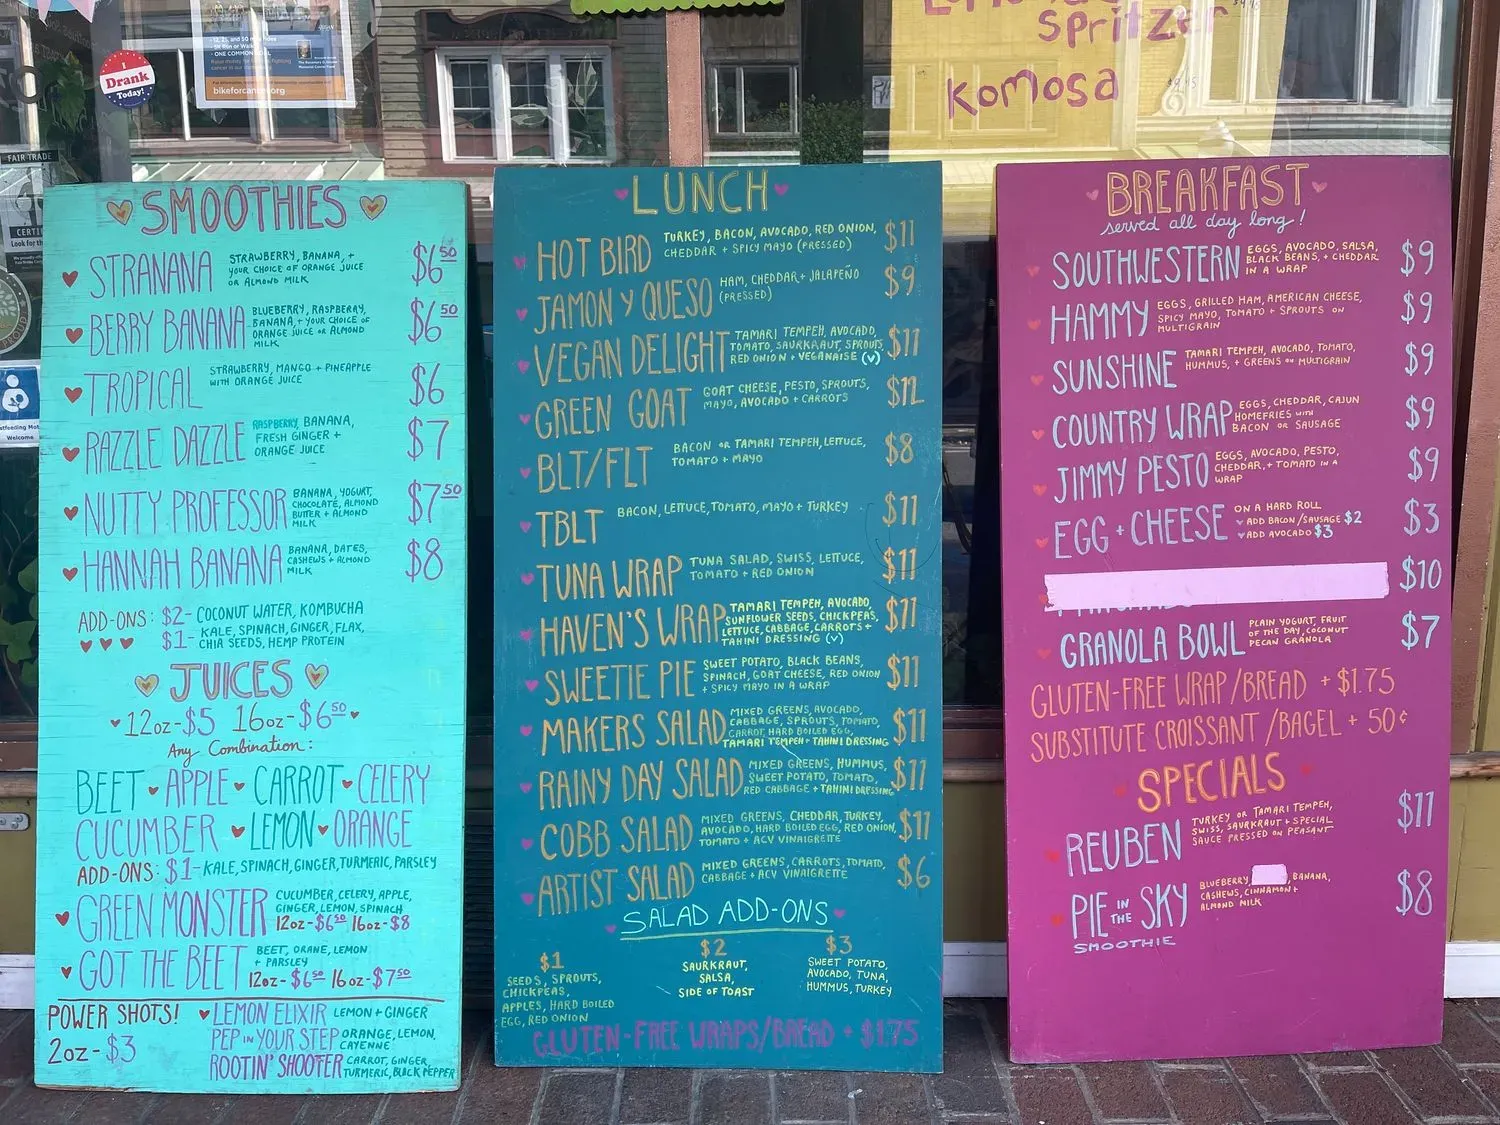 I
Drank
Today!
12, 25, and 50 mile rides
5K Run or Walk
ONE COMMON GOAL
bikeforcancer.org
FAIR TRADE
Look for th
Welcome
Spritzer
Komosa
SMOOTHIES
STRANANA STRAWBERRY, BANANA, + $6.50
YOUR CHOICE OF ORANGE JUICE
OR ALMOND MILK
BERRY BANANA BLUEBERRY, RASPBERRY, $6.50
BANANA, + YOUR CHOICE OF
ORANGE JUICE OR ALMOND
MILK
TROPICAL STRAWBERRY, MANGO + PINEAPPLE $6
WITH ORANGE JUICE
RAZZLE DAZZLE RASPBERRY, BANANA, $7
FRESH GINGER +
ORANGE JUICE
NUTTY PROFESSOR BANANA, YOGURT, $7.50
CHOCOLATE, ALMOND
BUTTER + ALMOND
MILK
HANNAH BANANA BANANA, DATES, $8
CASHEWS + ALMOND
MILK
ADD-ONS: $2- COCONUT WATER, KOMBUCHA
$1- KALE, SPINACH, GINGER, FLAX,
CHIA SEEDS, HEMP PROTEIN
JUICES
12oz-$5 16oz-$6.50
Any Combination:
BEET APPLE CARROT CELERY
CUCUMBER LEMON ORANGE
ADD-ONS: $1- KALE, SPINACH, GINGER, TURMERIC, PARSLEY
GREEN MONSTER CUCUMBER, CELERY, APPLE,
GINGER, LEMON, SPINACH
12oz-$6.50 16oz-$8
GOT THE BEET BEET, ORANE, LEMON
+ PARSLEY
12oz-$6.50 16oz-$7.50
POWER SHOTS! LEMON ELIXIR LEMON + GINGER
2oz-$3 PEP IN YOUR STEP ORANGE, LEMON,
CAYENNE
ROOTIN' SHOOTER CARROT, GINGER,
TURMERIC, BLACK PEPPER
LUNCH
HOT BIRD TURKEY, BACON, AVOCADO, RED ONION, $11
CHEDDAR + SPICY MAYO (PRESSED)
JAMON y QUESO HAM, CHEDDAR + JALAPEÑO $9
(PRESSED)
VEGAN DELIGHT TAMARI TEMPEH, AVOCADO, $11
TOMATO, SAURKRAUT, SPROUTS
RED ONION + VEGANAISE (V)
GREEN GOAT GOAT CHEESE, PESTO, SPROUTS,
MAYO, AVOCADO + CARROTS
BLT/FLT BACON OR TAMARI TEMPEH, LETTUCE, $8
TOMATO + MAYO
TBLT BACON, LETTUCE, TOMATO, MAYO + TURKEY $11
TUNA WRAP TUNA SALAD, SWISS, LETTUCE, $11
TOMATO + RED ONION
HAVEN'S WRAP TAMARI TEMPEH, AVOCADO, $11
SUNFLOWER SEEDS, CHICKPEAS,
LETTUCE, CABBAGE, CARROTS +
TAHINI DRESSING (V)
SWEETIE PIE SWEET POTATO, BLACK BEANS, $11
SPINACH, GOAT CHEESE, RED ONION
+ SPICY MAYO IN A WRAP
MAKERS SALAD MIXED GREENS, AVOCADO, $11
CABBAGE, SPROUTS, TOMATO,
CARROT, HARD BOILED EGG,
TAMARI TEMPEH + TAHINI DRESSING
RAINY DAY SALAD MIXED GREENS, HUMMUS, $11
SWEET POTATO, TOMATO,
RED CABBAGE + TAHINI DRESSING
COBB SALAD MIXED GREENS, CHEDDAR, TURKEY, $11
AVOCADO, HARD BOILED EGG, RED ONION,
TOMATO + ACV VINAIGRETTE
ARTIST SALAD MIXED GREENS, CARROTS, TOMATO, $6
CABBAGE + ACV VINAIGRETTE
SALAD ADD-ONS
$1
SEEDS, SPROUTS,
CHICKPEAS,
APPLES, HARD BOILED
EGG, RED ONION
$2
SAURKRAUT,
SALSA,
SIDE OF TOAST
$3
SWEET POTATO,
AVOCADO, TUNA,
HUMMUS, TURKEY
GLUTEN-FREE WRAPS/BREAD + $1.75
BREAKFAST
served all day long!
SOUTHWESTERN EGGS, AVOCADO, SALSA, $9
BLACK BEANS, + CHEDDAR
IN A WRAP
HAMMY EGGS, GRILLED HAM, AMERICAN CHEESE, $9
SPICY MAYO, TOMATO + SPROUTS ON
MULTIGRAIN
SUNSHINE TAMARI TEMPEH, AVOCADO, TOMATO, $9
HUMMUS, + GREENS ON MULTIGRAIN
COUNTRY WRAP EGGS, CHEDDAR, CAJUN $9
HOMEFRIES WITH
BACON OR SAUSAGE
JIMMY PESTO EGGS, AVOCADO, PESTO, $9
CHEDDAR, + TOMATO IN A
WRAP
EGG + CHEESE ON A HARD ROLL $3
ADD BACON/SAUSAGE $2
ADD AVOCADO $3
$10
GRANOLA BOWL PLAIN YOGURT, FRUIT $7
OF THE DAY, COCONUT
PECAN GRANOLA
GLUTEN-FREE WRAP/BREAD + $1.75
SUBSTITUTE CROISSANT/BAGEL + 50¢
SPECIALS
REUBEN TURKEY OR TAMARI TEMPEH, $11
SWISS, SAURKRAUT + SPECIAL
SAUCE PRESSED ON PEASANT
PIE IN THE SKY BLUEBERRY BANANA, $8
CASHEWS, CINNAMON +
ALMOND MILK
SMOOTHIE